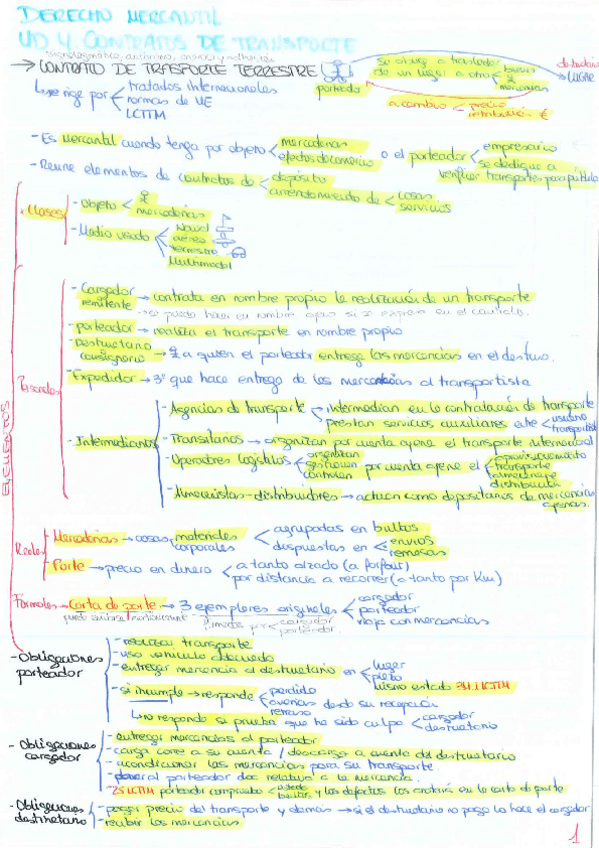 DERECHO MERCANTIL
UD 4 CONTRATOS DE TRANSPORTE
→ CONTRATO DE TRASPORTE TERRESTRE
porteador
se obliga a trasladar
de un lugar a otro
bienes
mercancías
LUGAR
a cambio
precio
retribución €
se rige por
tratados internacionales
normas de UE
LCTTM
- Es mercantil cuando tenga por objeto
mercaderías
efectos de comercio
o el porteador
empresario
se dedique a
verificar transportes para público
- Reune elementos de contratos de
depósito
arrendamiento de
cosas
servicios
ELEMENTOS
Clases
- Objeto
mercaderías
- Medio usado
Naval
aéreo
terrestre
Multimodal
Personales
- Cargador
remitente
→ contrata en nombre propio la realización de un transporte
- porteador → realiza el transporte en nombre propio
- Destinatario
consignatario
→ a quien el porteador entrega las mercancías en el destino.
- Expedidor → 3º que hace entrega de las mercancías al transportista
- Intermediarios
- Agencias de transporte
intermedian en la contratación de transporte
prestan servicios auxiliares entre
usuario
transportista
- Transitarios → organizan por cuenta ajena el transporte internacional
- Operadores logísticos
organizan
gestionan
controlan
por cuenta ajena el
aprovisionamiento
transporte
almacenaje
distribución
- Almacenistas-distribuidores → actúan como depositarios de mercancías
ajenas.
Reales
- Mercaderías → cosas
materiales
corporales
agrupadas en bultos
dispuestas en
envíos
remesas
- Porte → precio en dinero
a tanto alzado (a forfait)
por distancia a recorrer (o tanto por Km)
Formales - Carta de porte → 3 ejemplares originales
cargador
porteador
viaja con mercancías
firmados por
cargador
porteador.
- Obligaciones
porteador
- realizar transporte
- uso vehículo adecuado
- entregar mercancía al destinatario en
lugar
plazo
mismo estado 34.1 LCTTM
- si incumple → responde
pérdida
averías desde su recepción
retraso
no responde si prueba que ha sido culpa
cargador
destinatario
- Obligaciones
cargador
- entregar mercancías al porteador
- carga corre a su cuenta / descarga a cuenta del destinatario
- acondicionar las mercancías para su transporte
- al porteador doc relativa a la mercancía.
- 25 LCTTM porteador comprueba
estado
bultos
y los defectos los anotará en la carta de porte
- Obligaciones
destinatario
- pagar precio del transporte y demás → si el destinatario no paga lo hace el cargador
- recibir las mercancías
1